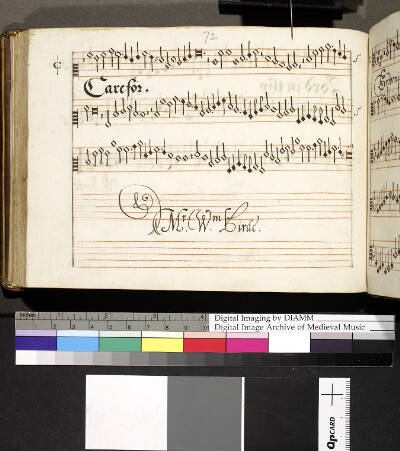 72
Care for.
Mr. Wm. Birde.
inches
Digital Imaging by DIAMM
Digital Image Archive of Medieval Music
QPCARD